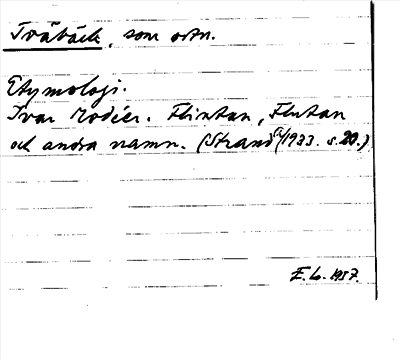 Tvåbäck, som ortn.
Etymologi.
Ivar Modéer. Flintan, Flutan
och andra namn. (Strand 1933. s. 20.)
E. L. 1957.